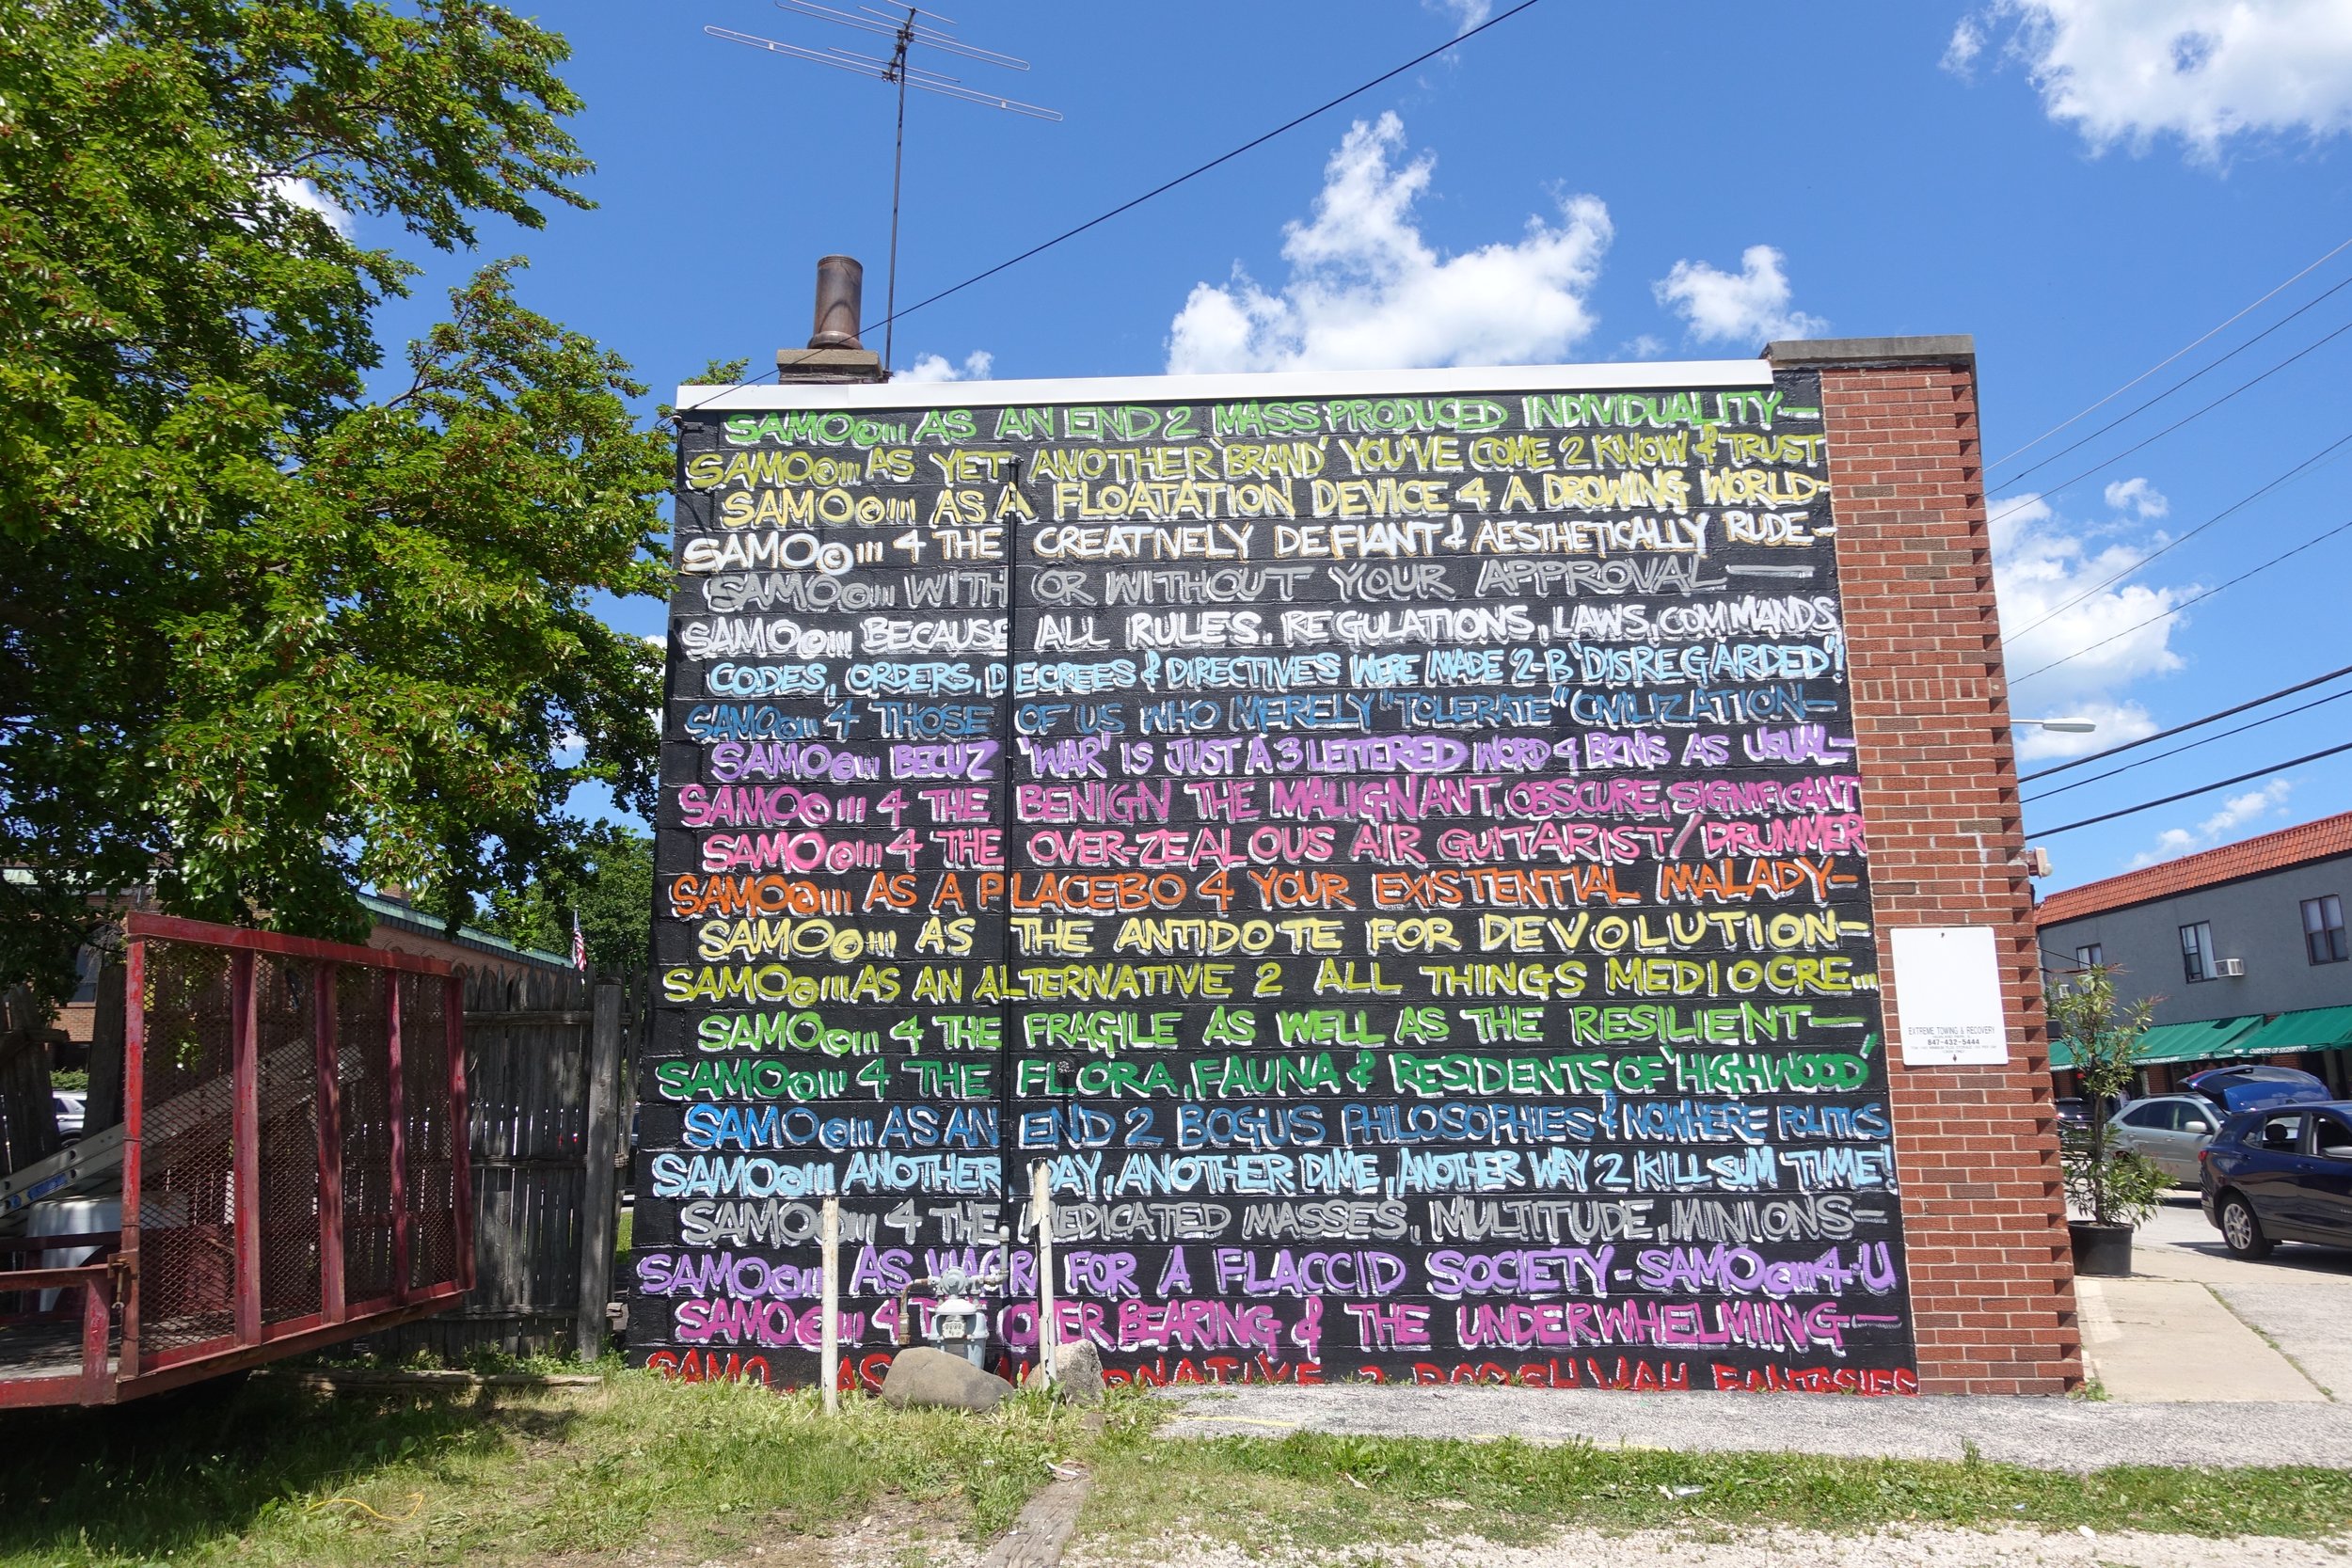 SAMO©... AS AN END 2 MASS PRODUCED INDIVIDUALITY—
SAMO©... AS YET ANOTHER 'BRAND' YOU'VE COME 2 KNOW & TRUST
SAMO©... AS A FLOATATION DEVICE 4 A DROWING WORLD-
SAMO©... 4 THE CREATIVELY DEFIANT & AESTHETICALLY RUDE-
SAMO©... WITH OR WITHOUT YOUR APPROVAL—
SAMO©... BECAUSE ALL RULES, REGULATIONS, LAWS, COMMANDS,
CODES, ORDERS, DECREES & DIRECTIVES WERE MADE 2-B 'DISREGARDED'!
SAMO©... 4 THOSE OF US WHO MERELY "TOLERATE" CIVILIZATION—
SAMO©... BECUZ 'WAR' IS JUST A 3 LETTERED WORD 4 BZNS AS USUAL-
SAMO©... 4 THE BENIGN THE MALIGNANT, OBSCURE, SIGNIFICANT
SAMO©... 4 THE OVER-ZEALOUS AIR GUITARIST/DRUMMER
SAMO©... AS A PLACEBO 4 YOUR EXISTENTIAL MALADY-
SAMO©... AS THE ANTIDOTE FOR DEVOLUTION-
SAMO©... AS AN ALTERNATIVE 2 ALL THINGS MEDIOCRE...
SAMO©... 4 THE FRAGILE AS WELL AS THE RESILIENT—
SAMO©... 4 THE FLORA, FAUNA & RESIDENTS OF 'HIGHWOOD'
SAMO©... AS AN END 2 BOGUS PHILOSOPHIES & NOWHERE POLITICS
SAMO©... ANOTHER DAY, ANOTHER DIME, ANOTHER WAY 2 KILL SUM TIME!
SAMO©... 4 THE MEDICATED MASSES, MULTITUDE, MINIONS-
SAMO©... AS VIAGRA FOR A FLACCID SOCIETY-SAMO©...4-U
SAMO©... 4 THE OVER BEARING & THE UNDERWHELMING—
SAMO AS 2 FANTASIES
EXTREME TOWING & RECOVERY
847-432-5444